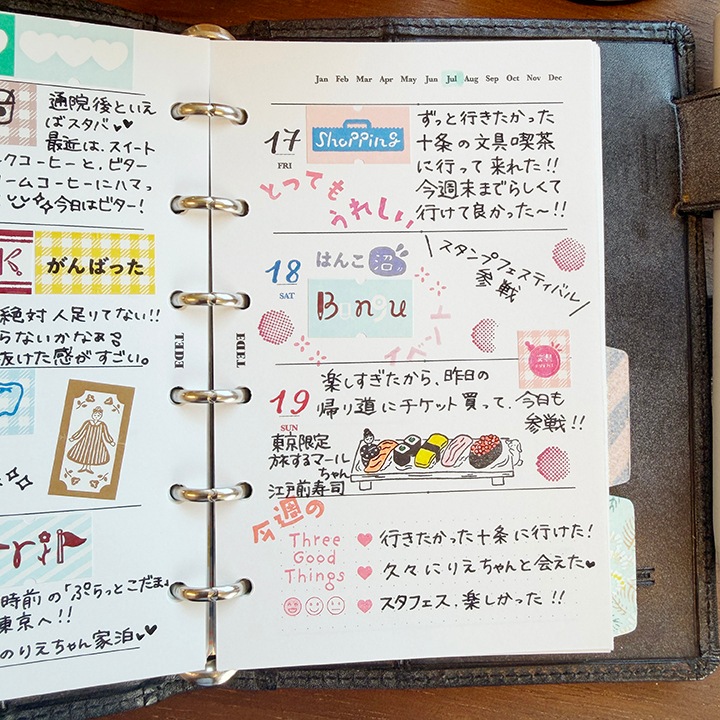 通院後といえ
ばスタバ
最近は、スイート
クコーヒーと、ビター
ームコーヒーにハマっ
今日はビター!
K.
がんばった
絶対人足りてない!!
らないかなぁ
抜けた感がすごい。
時前の「ぷらっとこだま」
東京へ!!
のりえちゃん家泊
Jan Feb Mar Apr May Jun Jul Aug Sep Oct Nov Dec
17
FRI
Shopping
ずっと行きたかった
十条の文具喫茶
に行って来れた!!
今週末までらしくて
行けて良かった〜!!
とっても
うれしい
18
SAT
はんこ沼
スタンプフェスティバル
参戦
イベント
19
SUN
楽しすぎたから、昨日の
帰り道にチケット買って、今日も
参戦!!
東京限定
旅するマール
ちゃん
江戸前寿司
今週の
Three
Good
Things
行きたかった十条に行けた!
久々にりえちゃんと会えた
スタフェス、楽しかった!!